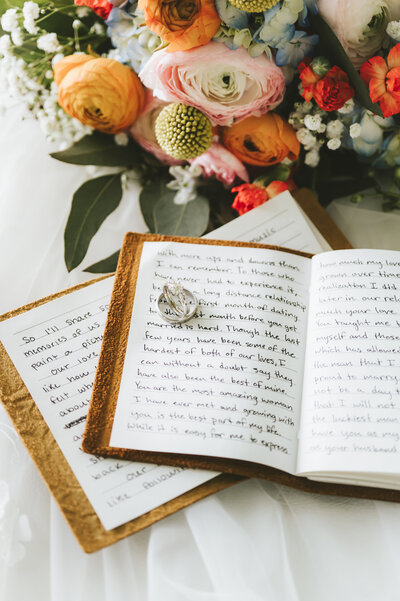 with more ups and downs than
I can remember. To those who
have never had to experience it,
long distance relation
first month of dating
month before you get
married is hard. Though the last
few years have been some of the
hardest of both of our lives, I
can without a doubt say they
have also been the best of mine.
You are the most amazing woman
I have ever met and growing with
you is the best part of my life.
While it is easy for me to express
much my love
grown over time
realization I did
later in our rela
much your love
You taught me
myself and those
which has allowed
the man that I
proud to marry
not be a day
that I will not
the luckiest man
have you as my
as your husband
So I'll share
memories of us
paint a
our love
like how
and felt
about
back
like follow